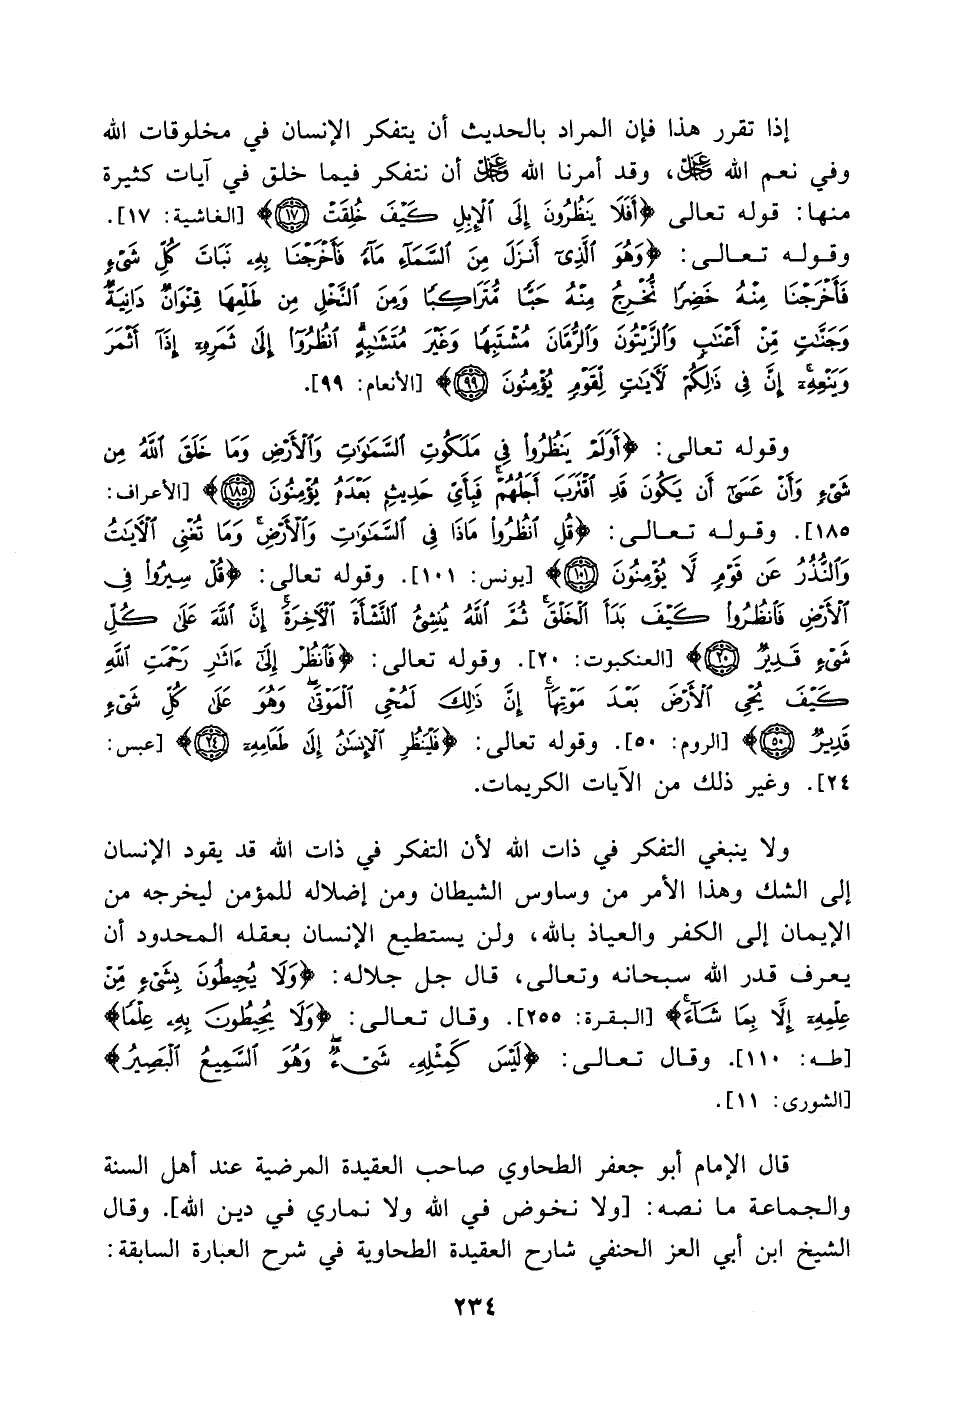 إذا تقرر هذا فإن المراد بالحديث أن يتفكر الإنسان في مخلوقات الله
وفي نعم الله ﷻ، وقد أمرنا الله ﷻ أن نتفكر فيما خلق في آيات كثيرة
منها: قوله تعالى ﴿أَفَلَا يَنظُرُونَ إِلَى ٱلْإِبِلِ كَيْفَ خُلِقَتْ ١٧﴾ [الغاشية: ١٧].
وقوله تعالى: ﴿وَهُوَ ٱلَّذِىٓ أَنزَلَ مِنَ ٱلسَّمَآءِ مَآءً فَأَخْرَجْنَا بِهِۦ نَبَاتَ كُلِّ شَىْءٍ
فَأَخْرَجْنَا مِنْهُ خَضِرًا نُّخْرِجُ مِنْهُ حَبًّا مُّتَرَاكِبًا وَمِنَ ٱلنَّخْلِ مِن طَلْعِهَا قِنْوَانٌ دَانِيَةٌ
وَجَنَّٰتٍ مِّنْ أَعْنَابٍ وَٱلزَّيْتُونَ وَٱلرُّمَّانَ مُشْتَبِهًا وَغَيْرَ مُتَشَٰبِهٍ ۗ ٱنظُرُوٓا۟ إِلَىٰ ثَمَرِهِۦٓ إِذَآ أَثْمَرَ
وَيَنْعِهِۦٓ ۚ إِنَّ فِى ذَٰلِكُمْ لَءَايَٰتٍ لِّقَوْمٍ يُؤْمِنُونَ ٩٩﴾ [الأنعام: ٩٩].
وقوله تعالى: ﴿أَوَلَمْ يَنظُرُوا۟ فِى مَلَكُوتِ ٱلسَّمَٰوَٰتِ وَٱلْأَرْضِ وَمَا خَلَقَ ٱللَّهُ مِن
شَىْءٍ وَأَنْ عَسَىٰٓ أَن يَكُونَ قَدِ ٱقْتَرَبَ أَجَلُهُمْ ۖ فَبِأَىِّ حَدِيثٍۭ بَعْدَهُۥ يُؤْمِنُونَ ١٨٥﴾ [الأعراف:
١٨٥]. وقوله تعالى: ﴿قُلِ ٱنظُرُوا۟ مَاذَا فِى ٱلسَّمَٰوَٰتِ وَٱلْأَرْضِ ۚ وَمَا تُغْنِى ٱلْءَايَٰتُ
وَٱلنُّذُرُ عَن قَوْمٍ لَّا يُؤْمِنُونَ ١٠١﴾ [يونس: ١٠١]. وقوله تعالى: ﴿قُلْ سِيرُوا۟ فِى
ٱلْأَرْضِ فَٱنظُرُوا۟ كَيْفَ بَدَأَ ٱلْخَلْقَ ۚ ثُمَّ ٱللَّهُ يُنشِئُ ٱلنَّشْأَةَ ٱلْءَاخِرَةَ ۚ إِنَّ ٱللَّهَ عَلَىٰ كُلِّ
شَىْءٍ قَدِيرٌ ٢٠﴾ [العنكبوت: ٢٠]. وقوله تعالى: ﴿فَٱنظُرْ إِلَىٰٓ ءَاثَٰرِ رَحْمَتِ ٱللَّهِ
كَيْفَ يُحْىِ ٱلْأَرْضَ بَعْدَ مَوْتِهَآ ۚ إِنَّ ذَٰلِكَ لَمُحْىِ ٱلْمَوْتَىٰ ۖ وَهُوَ عَلَىٰ كُلِّ شَىْءٍ
قَدِيرٌ ٥٠﴾ [الروم: ٥٠]. وقوله تعالى: ﴿فَلْيَنظُرِ ٱلْإِنسَٰنُ إِلَىٰ طَعَامِهِۦٓ ٢٤﴾ [عبس:
٢٤]. وغير ذلك من الآيات الكريمات.
ولا ينبغي التفكر في ذات الله لأن التفكر في ذات الله قد يقود الإنسان
إلى الشك وهذا الأمر من وساوس الشيطان ومن إضلاله للمؤمن ليخرجه من
الإيمان إلى الكفر والعياذ بالله، ولن يستطيع الإنسان بعقله المحدود أن
يعرف قدر الله سبحانه وتعالى، قال جل جلاله: ﴿وَلَا يُحِيطُونَ بِشَىْءٍ مِّنْ
عِلْمِهِۦٓ إِلَّا بِمَا شَآءَ ۚ﴾ [البقرة: ٢٥٥]. وقال تعالى: ﴿وَلَا يُحِيطُونَ بِهِۦ عِلْمًا﴾
[طه: ١١٠]. وقال تعالى: ﴿لَيْسَ كَمِثْلِهِۦ شَىْءٌ ۖ وَهُوَ ٱلسَّمِيعُ ٱلْبَصِيرُ﴾
[الشورى: ١١].
قال الإمام أبو جعفر الطحاوي صاحب العقيدة المرضية عند أهل السنة
والجماعة ما نصه: [ولا نخوض في الله ولا نماري في دين الله]. وقال
الشيخ ابن أبي العز الحنفي شارح العقيدة الطحاوية في شرح العبارة السابقة:
٢٣٤